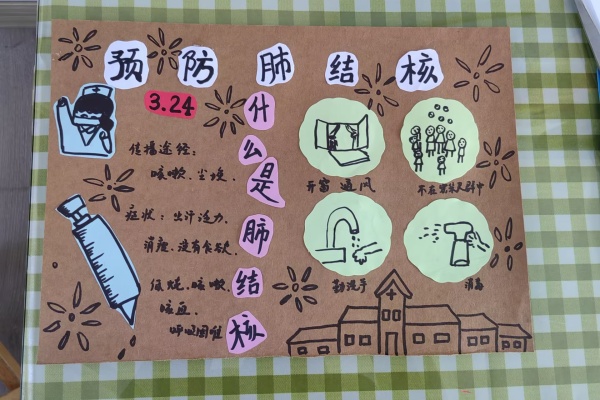 预防肺结核
3.24
什么是肺结核
传播途径：
咳嗽、尘埃、
症状：出汗乏力、
消瘦、没有食欲、
低烧、咳嗽、
咳血、
呼吸困难
开窗 通风
不在密集人群中
勤洗手
消毒